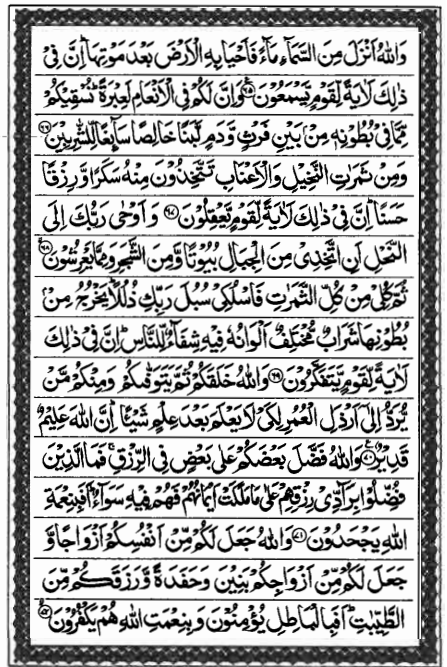 وَاللّٰهُ اَنْزَلَ مِنَ السَّمَآءِ مَآءً فَاَحْيَا بِهِ الْاَرْضَ بَعْدَ مَوْتِهَا ؕ اِنَّ فِیْ
ذٰلِكَ لَاٰيَةً لِّقَوْمٍ يَّسْمَعُوْنَ ﴿۶۵﴾ وَاِنَّ لَكُمْ فِی الْاَنْعَامِ لَعِبْرَةً ؕ نُسْقِيْكُمْ
مِّمَّا فِیْ بُطُوْنِهٖ مِنْۢ بَيْنِ فَرْثٍ وَّدَمٍ لَّبَنًا خَالِصًا سَآئِغًا لِّلشّٰرِبِيْنَ ﴿۶۶﴾
وَمِنْ ثَمَرٰتِ النَّخِيْلِ وَالْاَعْنَابِ تَتَّخِذُوْنَ مِنْهُ سَكَرًا وَّرِزْقًا
حَسَنًا ؕ اِنَّ فِیْ ذٰلِكَ لَاٰيَةً لِّقَوْمٍ يَّعْقِلُوْنَ ﴿۶۷﴾ وَاَوْحٰی رَبُّكَ اِلَی
النَّحْلِ اَنِ اتَّخِذِیْ مِنَ الْجِبَالِ بُيُوْتًا وَّمِنَ الشَّجَرِ وَمِمَّا يَعْرِشُوْنَ ﴿۶۸﴾
ثُمَّ كُلِیْ مِنْ كُلِّ الثَّمَرٰتِ فَاسْلُكِیْ سُبُلَ رَبِّكِ ذُلُلًا ؕ يَخْرُجُ مِنْۢ
بُطُوْنِهَا شَرَابٌ مُّخْتَلِفٌ اَلْوَانُهٗ فِيْهِ شِفَآءٌ لِّلنَّاسِ ؕ اِنَّ فِیْ ذٰلِكَ
لَاٰيَةً لِّقَوْمٍ يَّتَفَكَّرُوْنَ ﴿۶۹﴾ وَاللّٰهُ خَلَقَكُمْ ثُمَّ يَتَوَفّٰىكُمْ وَمِنْكُمْ مَّنْ
يُّرَدُّ اِلٰۤی اَرْذَلِ الْعُمُرِ لِكَیْ لَا يَعْلَمَ بَعْدَ عِلْمٍ شَيْئًا ؕ اِنَّ اللّٰهَ عَلِيْمٌ
قَدِيْرٌ ﴿۷۰﴾ وَاللّٰهُ فَضَّلَ بَعْضَكُمْ عَلٰی بَعْضٍ فِی الرِّزْقِ ۚ فَمَا الَّذِيْنَ
فُضِّلُوْا بِرَآدِّیْ رِزْقِهِمْ عَلٰی مَا مَلَكَتْ اَيْمَانُهُمْ فَهُمْ فِيْهِ سَوَآءٌ ؕ اَفَبِنِعْمَةِ
اللّٰهِ يَجْحَدُوْنَ ﴿۷۱﴾ وَاللّٰهُ جَعَلَ لَكُمْ مِّنْ اَنْفُسِكُمْ اَزْوَاجًا وَّ
جَعَلَ لَكُمْ مِّنْ اَزْوَاجِكُمْ بَنِيْنَ وَحَفَدَةً وَّرَزَقَكُمْ مِّنَ
الطَّيِّبٰتِ ؕ اَفَبِالْبَاطِلِ يُؤْمِنُوْنَ وَبِنِعْمَتِ اللّٰهِ هُمْ يَكْفُرُوْنَ ﴿۷۲﴾